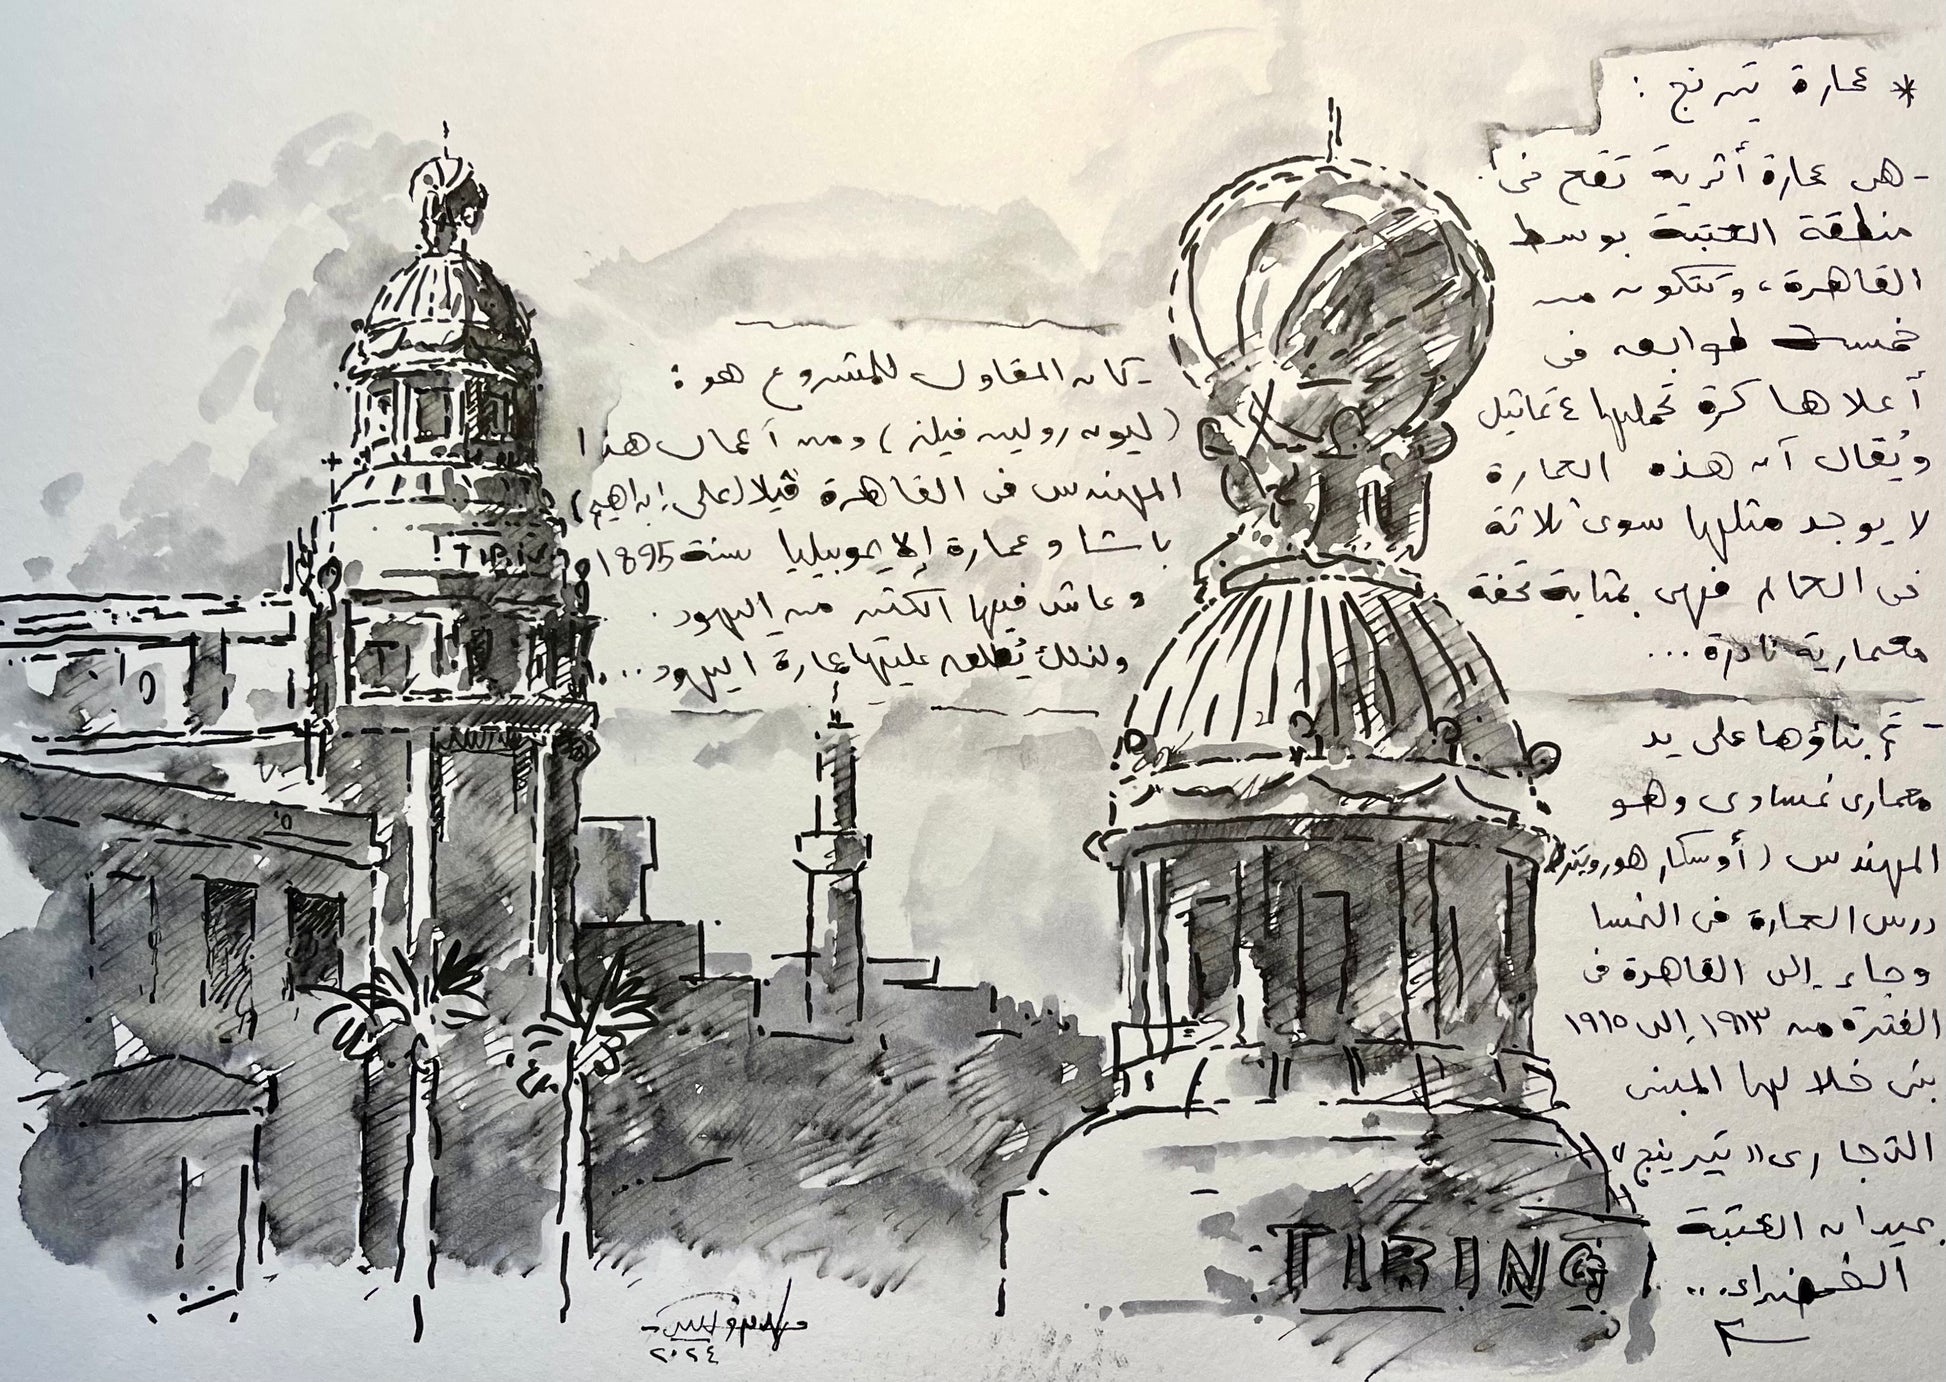 * عمارة تيرنج :
- هى عمارة أثرية تقع فى
منطقة العتبة بوسط
القاهرة، وتتكون من
خمسة طوابق فى
أعلاها كرة تحملها ٤ تماثيل
ويُقال أن هذه العمارة
لا يوجد مثلها سوى ثلاثة
فى العالم فهى بمثابة تحفة
معمارية نادرة...
- تم بناؤها على يد
معمارى نمساوى وهو
المهندس (أوسكار هورويتز)
درس العمارة فى النمسا
وجاء إلى القاهرة فى
الفترة من ١٩١٣ إلى ١٩١٥
بنى خلالها المبنى
التجارى "تيرينج"
بميدان العتبة
الخضراء..
- كان المقاول للمشروع هو :
(ليون رولين فيلز) ومن أعمال هذا
المهندس فى القاهرة ڤيلا (على إبراهيم)
باشا وعمارة الإيموبيليا سنة 1895
وعاش فيها الكثير من اليهود.
ولذلك يُطلق عليها عمارة اليهود...
TIRING
٢٠٢٤